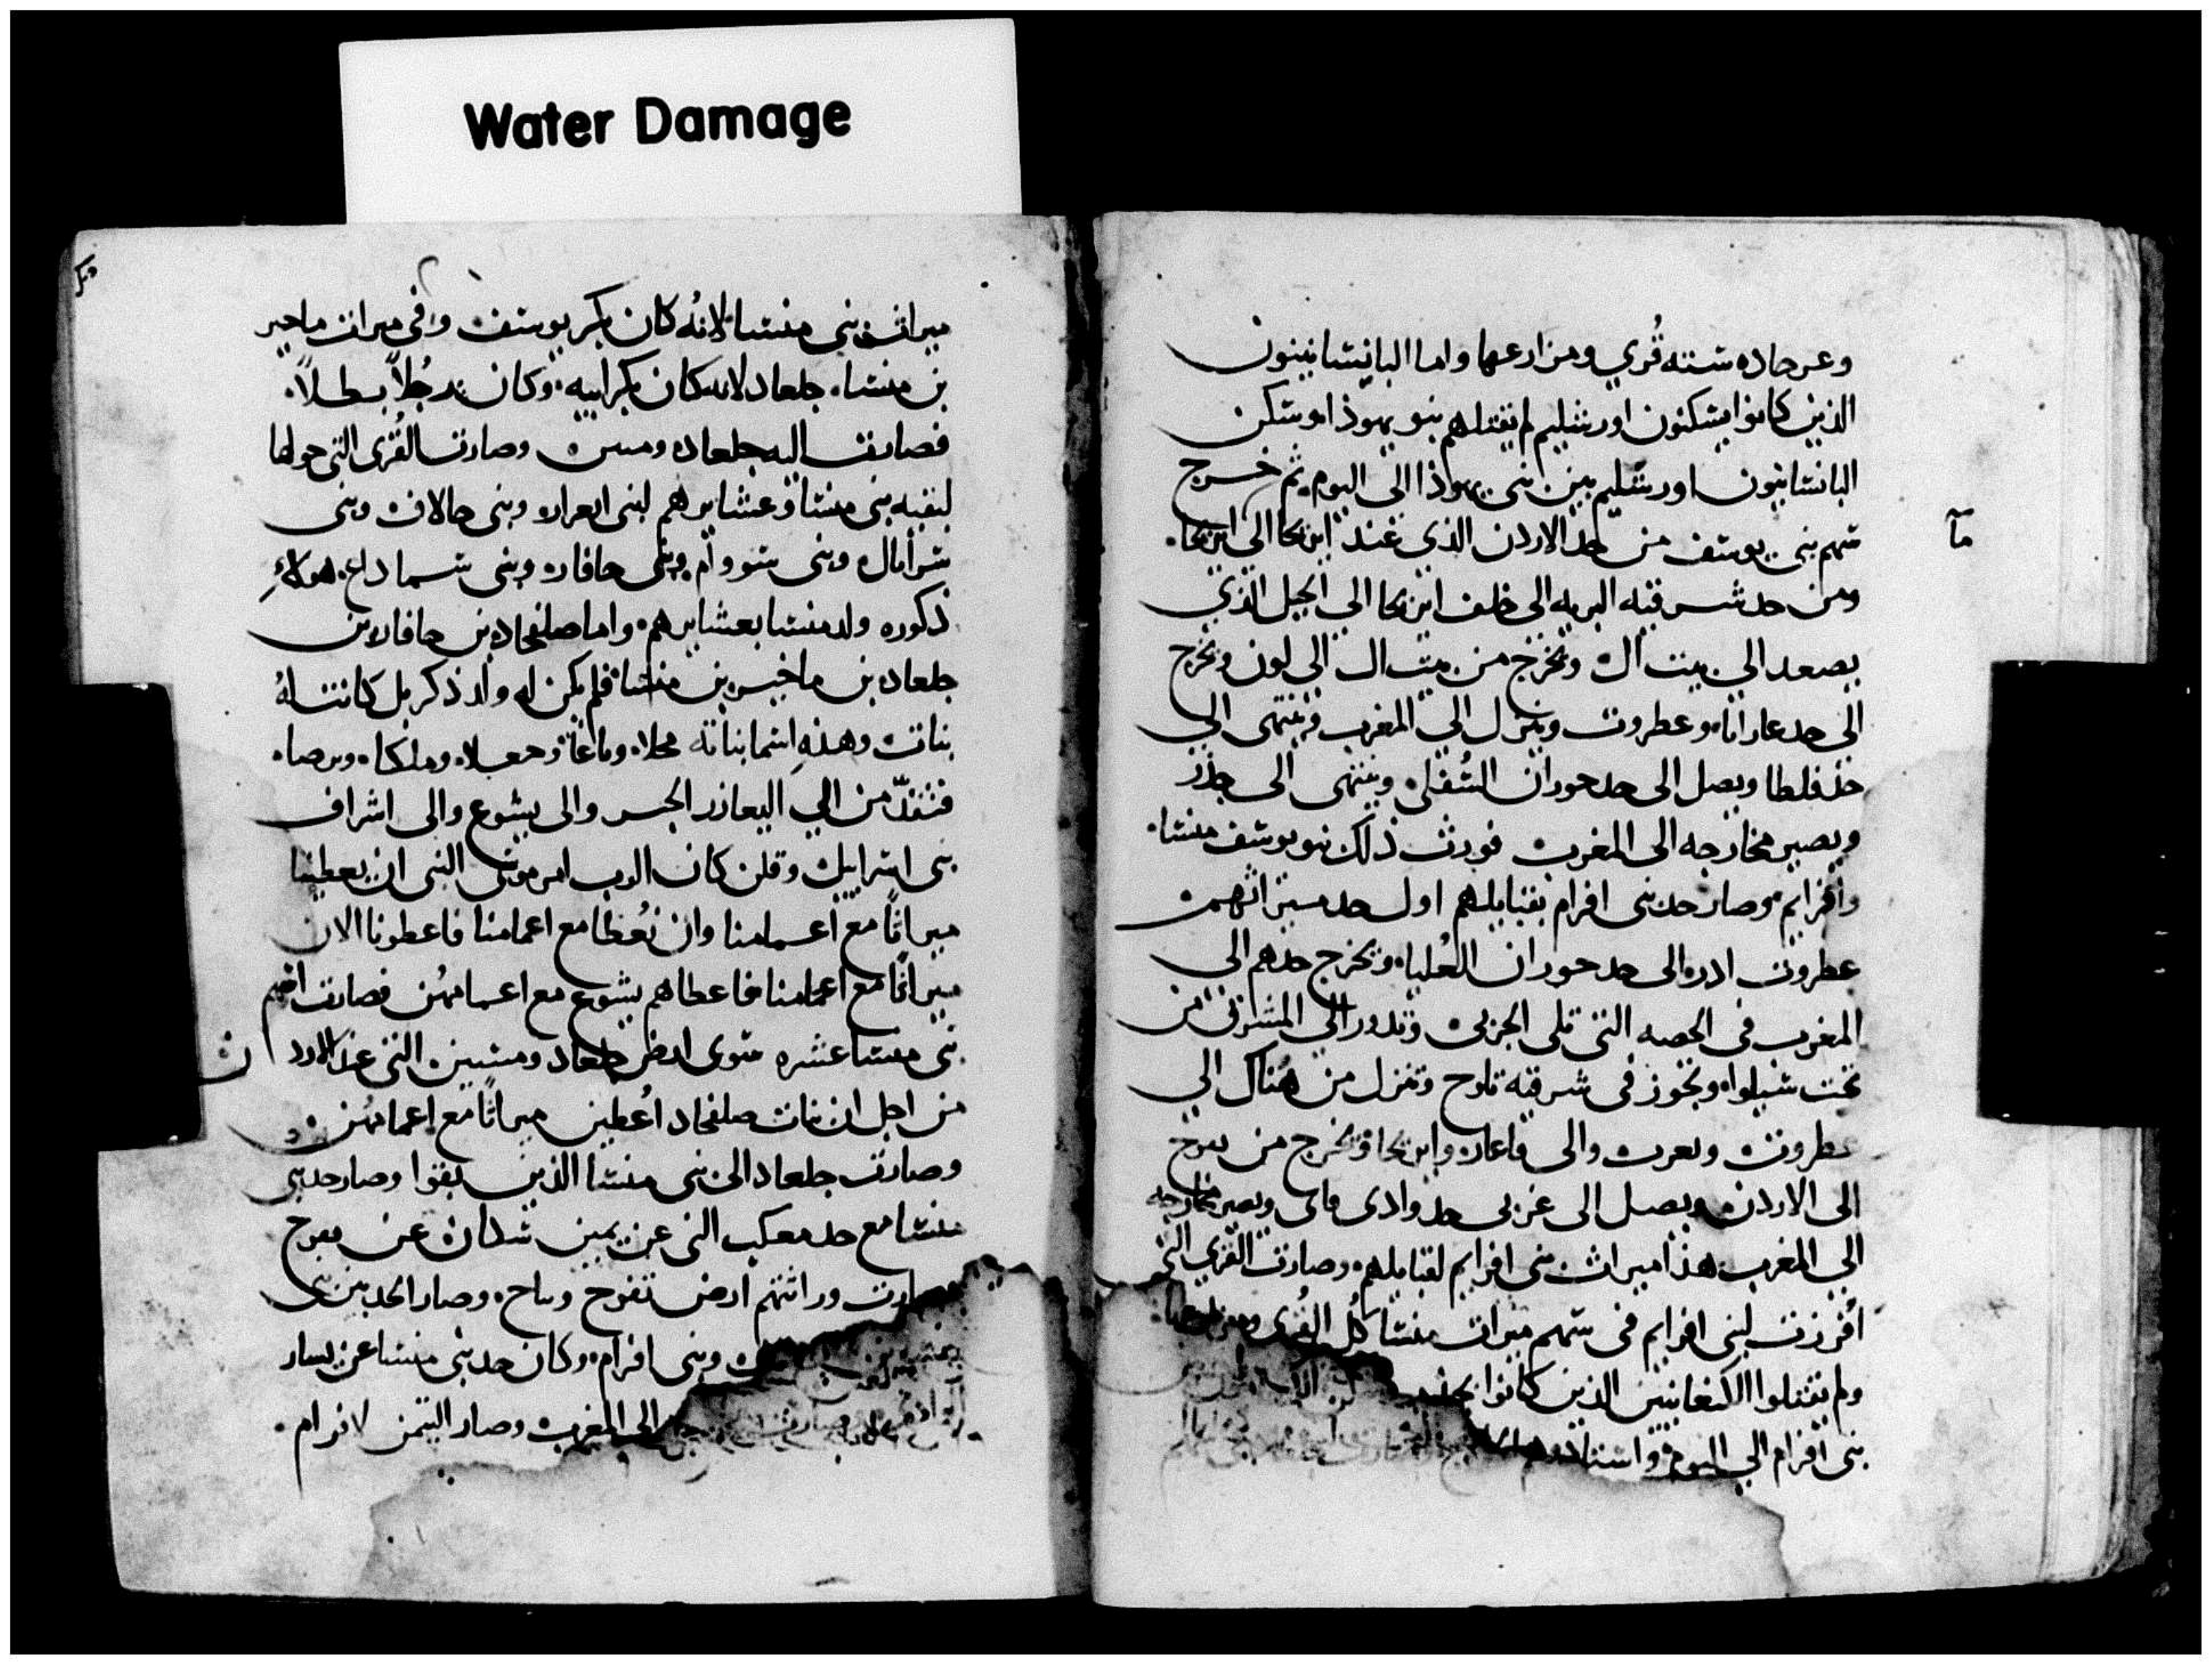 Water Damage
وعرجاده ستته قُري ومزارعها واما اليانسانيون
الذين كانوا يسكنون اورشليم لم يقتلهم بنو يهوذا وسكن
اليانسانيون اورشليم بين بني يهوذا الى اليوم ثم خرج
سهم بني يوسف من حد الاردن الذي عند اريحا الى اريحا.
ومن حد شرقيه البريه الى خلف اريحا الى الجبل الذي
يصعد الى بيت ال ويخرج من بيت ال الى لون ويخرج
الى حد عاراثا وعطروت وينزل الى المغرب وينتهى الى
حد فلطا ويصل الى حد حوران السُفلى وينتهى الى جذر
ويصير مخارجه الى المغرب فورث ذلك بنو يوسف منسا.
وافرايم وصار حد بني افرام بقبايلهم اول حد ميراثهم
عطروت ادره الى حد حوران العُليا ويخرج حدهم الى
المغرب في الحصه التى تلى الجربى وتدور الى المشرق من
تحت شيلوا ويجوز في شرقيه تلوح وتنزل من هُناك الى
عطروت ونعرت والى فاعار واريحا ويخرج من نفوح
الى الاردن ويصل الى غربى حد وادى قاى ويصير مخارجه
الى المغرب هذا ميراث بني افرايم لقبايلهم وصارت القري التى
اُفرزت لبني افرايم في سهم ميراث منسا كل القُرى ومزارعها.
ولم يقتلوا الكنعانيين الذين كانوا
بني افرام الى اليوم
مآ
ميراث بني منسا لانهُ كان بكر يوسف وفي ميراث ماحير
بن منسا. جلعاد لانه كان بكر ابيه. وكان رجُلاً بطلاً.
فصارت اليه جلعاد ومسن وصارت القُرى التى حولها
لبقيه بني منسا وعشايرهم لبنى ابعرار وبنى حالاف وبنى
سرأيال وبنى سووام وبنى حافار وبنى سماداع. هولاءِ
ذكوره ولد منسا بعشايرهم. واما صلفحاد بن حافار بن
جلعاد بن ماخير بن منسا فلم يكن له ولد ذكر بل كانت لهُ
بنات وهذهِ اسما بناته محلا. وماغا وحعلا وملكا. وبرصا.
فتقدّمن الى اليعازر الحبر والى يشوع والى اشراف
بنى اسراييل وقلن كان الرب امر موسى النبى ان يعطينا
ميراثًا مع اعمامنا وان نُعطا مع اعمامنا فاعطونا الان
ميراثًا مع اعمامنا فاعطاهم يشوع مع اعمامهُن فصارت
بنى منسا عشره سوى ارض جلعاد ومتنين التى عند الاردن
من اجل ان بنات صلفحاد اُعطين ميراثًا مع اعمامهُن
وصارت جلعاد الى بنى منسا الذين بقوا وصار حد بنى
منسا مع حد معكب التى عن يمين شدان عن نفوح
وصارت وراثتهم ارض تفوح وباح. وصار الحد بين بنى
وبنى افرام. وكان حد بنى منسا عن يسار
الى المغرب وصار التيمن لافرام.